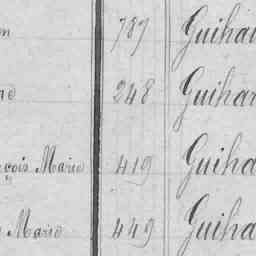 n 787 Guihar
ne 248 Guihar
nçois Marie 419 Guiha
s Marie 449 Guiha